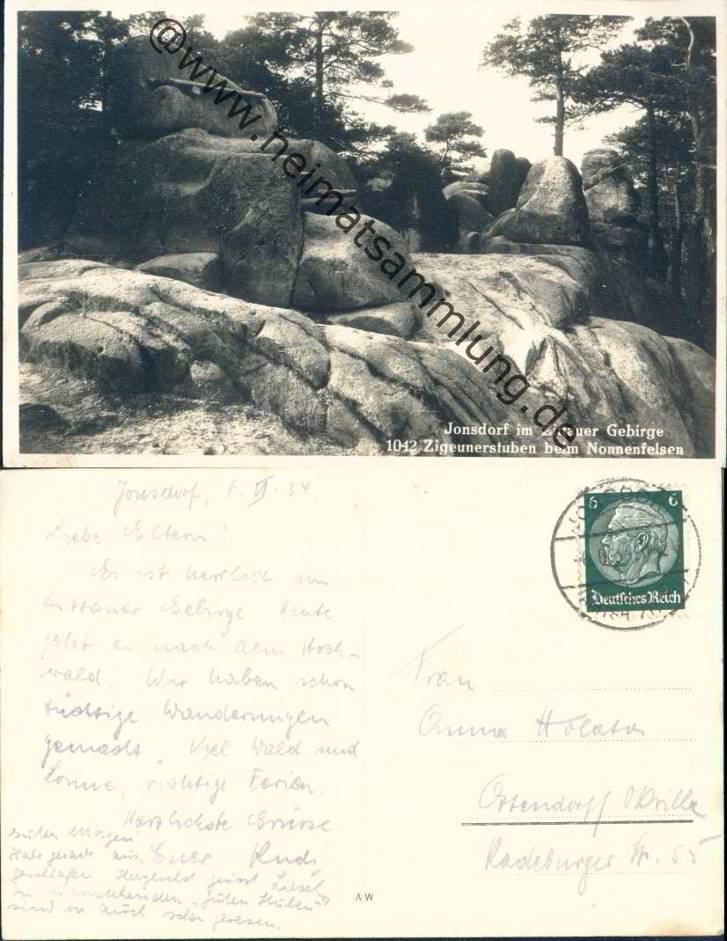 @www.heimatsammlung.de
Jonsdorf im Zittauer Gebirge
1042 Zigeunerstuben beim Nonnenfelsen
Jonsdorf, 6. VI. 34.
Liebe Eltern!
Es ist herrlich im
Zittauer Gebirge. Heute
geht es nach dem Hoch-
wald. Wir haben schon
tüchtige Wanderungen
gemacht. Viel Wald und
Sonne, richtige Ferien.
Herzlichste Grüsse
Euer Rudi
Guten Morgen!
Habe gerade aus
geschlafen. Herzlichst grüsst Liesel
In umstehenden „Guten Stuben"
sind wir auch schon gewesen.
6 6
Deutsches Reich
Frau
Anna
Ostendorff Okrilla
Radeburger Str. 55
NW